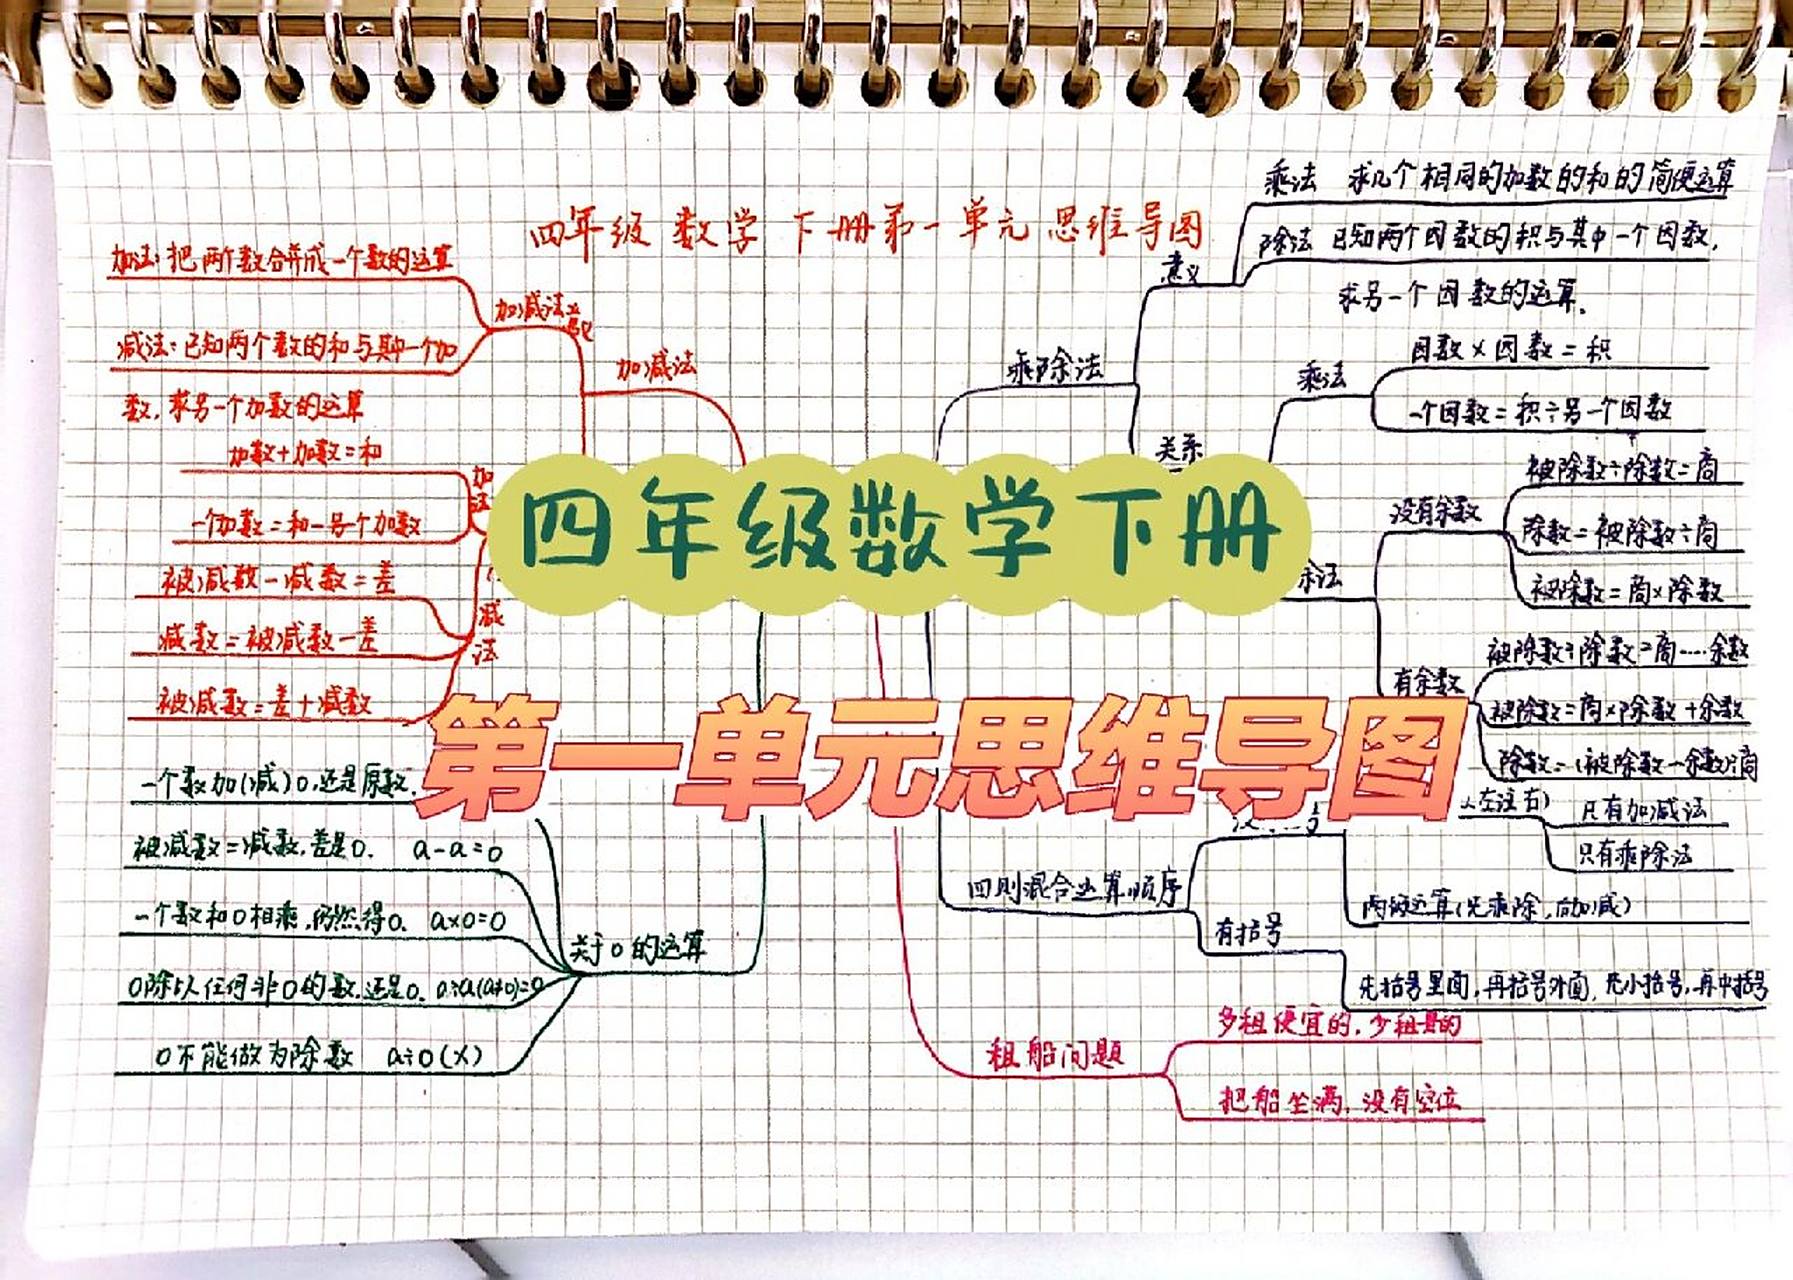 四年级 数学 下册第一单元思维导图
加法:把两个数合并成一个数的运算
减法:已知两个数的和与其中一个加
数,求另一个加数的运算
加减法意义
加减法
加数+加数=和
一个加数=和-另一个加数
加法
被减数-减数=差
减数=被减数-差
被减数=差+减数
减法
一个数加(减)0,还是原数.
被减数=减数,差是0. a-a=0
一个数和0相乘,仍然得0. a×0=0
0除以任何非0的数,还是0. a÷a(a≠0)=0
0不能做为除数 a÷0(×)
关于0的运算
乘除法
意义
乘法 求几个相同的加数的和的简便运算
除法 已知两个因数的积与其中一个因数,
求另一个因数的运算.
关系
乘法
因数×因数=积
一个因数=积÷另一个因数
除法
没有余数
被除数÷除数=商
除数=被除数÷商
被除数=商×除数
有余数
被除数÷除数=商……余数
被除数=商×除数+余数
除数=(被除数-余数)÷商
四年级数学下册
第一单元思维导图
四则混合运算顺序
左往右)
只有加减法
只有乘除法
两级运算(先乘除,后加减)
有括号
先括号里面,再括号外面,先小括号,再中括号
租船问题
多租便宜的,少租贵的
把船坐满,没有空位